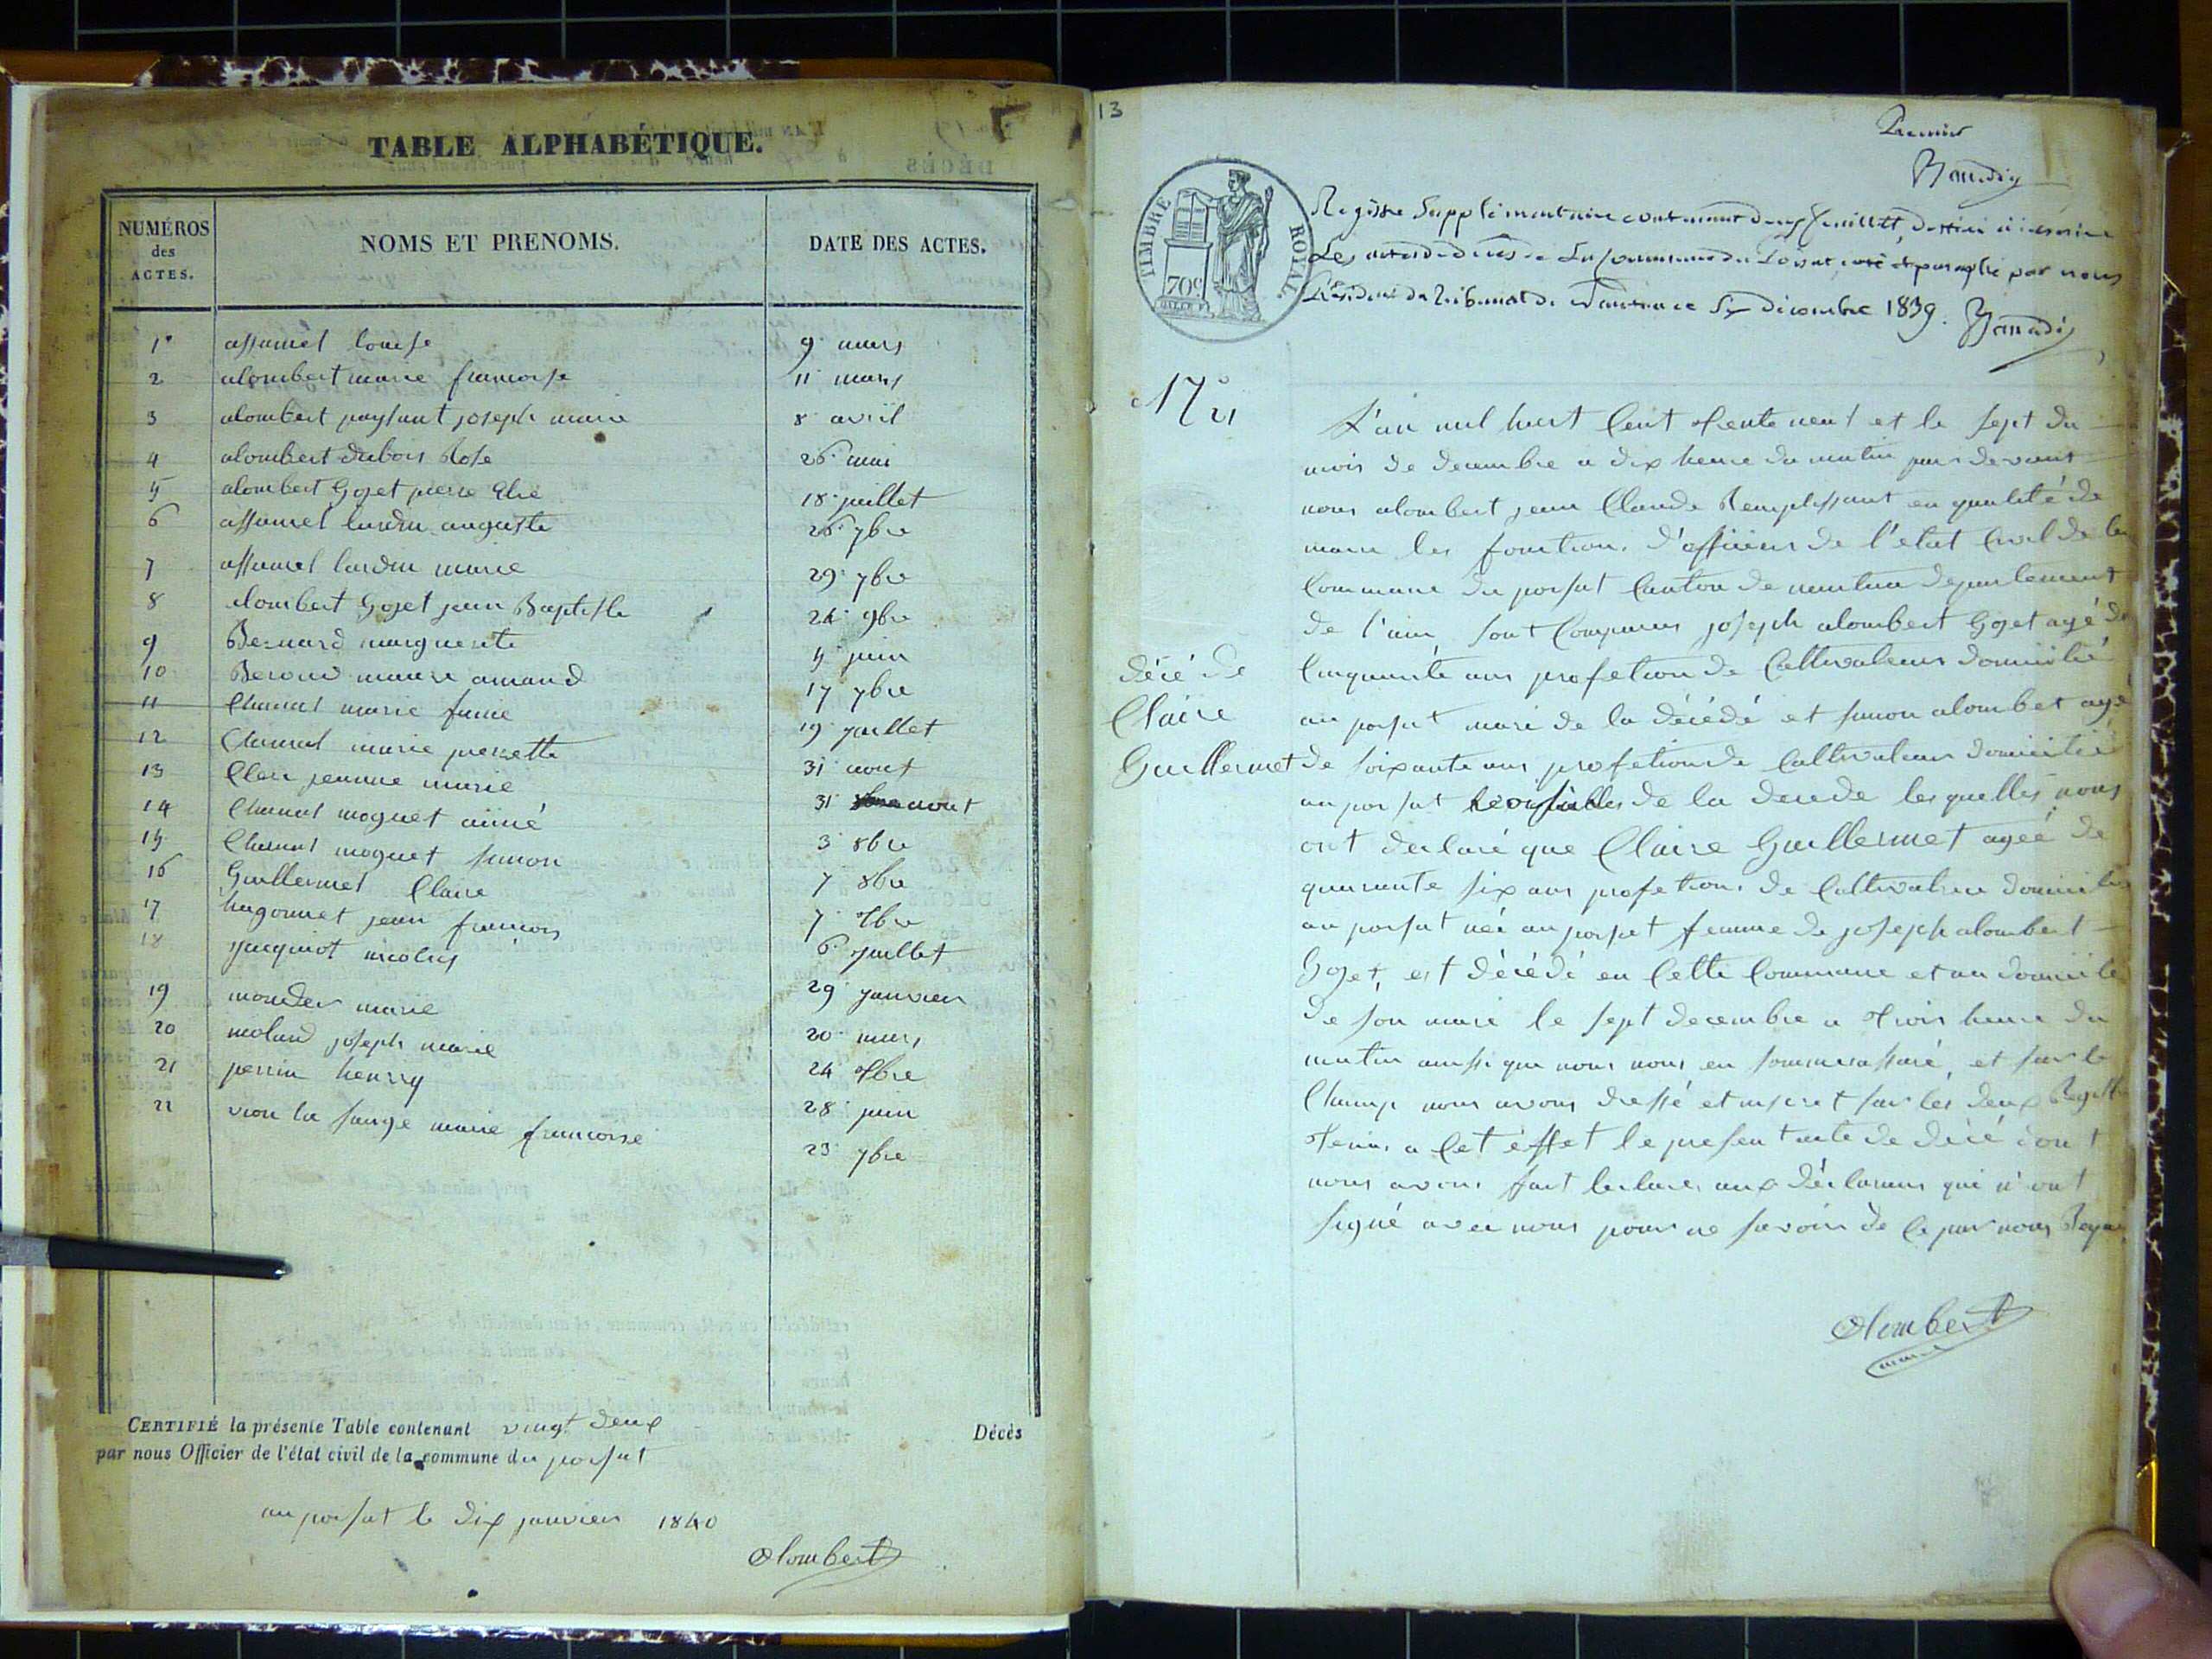 TABLE ALPHABÉTIQUE.
NUMÉROS des ACTES.
NOMS ET PRENOMS.
DATE DES ACTES.
1 assumel louise 9 mars
2 alombert marie francoise 11 mars
3 alombert paysant joseph marie 8 avril
4 alombert dubois Rose 26 mai
5 alombert Goget pierre Elie 18 juillet
6 assumel lardin auguste 26 7bre
7 assumel lardin marie 29 7bre
8 alombert Goget jean Baptiste 24 9bre
9 Bernard marguerite 4 juin
10 Beroud marie amand 17 7bre
11 Chanal marie 19 juillet
12 Chanal marie pierrette 31 aout
13 Clerc jeanne marie 31 aout
14 Chanal moguet aimé 3 8bre
15 Chanal moguet simon 7 8bre
16 Guillermet Claire 7 Xbre
17 hugonnet jean francois 6 juillet
18 jacquiot nicolas 29 janvier
19 marie 20 mars
20 molard joseph marie 24 Xbre
21 perrin henry 28 juin
22 vion la marie francoise 23 7bre
CERTIFIÉ la présente Table contenant vingt deux Décès
par nous Officier de l'état civil de la commune du poisat
au poisat le dix janvier 1840
Alombert
13
Premier
TIMBRE ROYAL
70c
Registre Supplémentaire contenant deux feuillets, destiné à inscrire
Les actes de décès de La commune du Poisat, coté et paraphé par nous
Président du Tribunal de Nantua ce décembre 1839.
N° 21
décé de
Claire
Guillermet
L'an mil huit Cent trente neuf et le sept du
mois de decembre a dix heure du matin par devant
nous alombert jean Claude Remplissant en qualité de
maire les fonctions d'officier de l'etat Civil de la
Commune du poisat Canton de nantua departement
de l'ain, sont Comparus joseph alombert Goget agé de
Cinquante ans profetion de Cultivateur domicilié
au poisat mari de la décédé et simon alombet agé
de soixante ans profetion de Cultivateur domicilié
au poisat de la décédé lesquelles nous
ont declaré que Claire Guillermet agée de
quarante six ans profetion de Cultivatrice domicilié
au poisat née au poisat femme de joseph alombert
Goget, est décédé en Cette Commune et au domicile
de son mari le sept decembre a trois heure du
matin ainssi que nous nous en sommes assuré, et sur le
Champ nous avons dressé et inscrit sur les deux Registre
tenus a Cet éffet le present acte de décé dont
nous avons fait lecture aux déclarans qui n'ont
signé avec nous pour ne savoir de Ce par nous
Alombert
maire